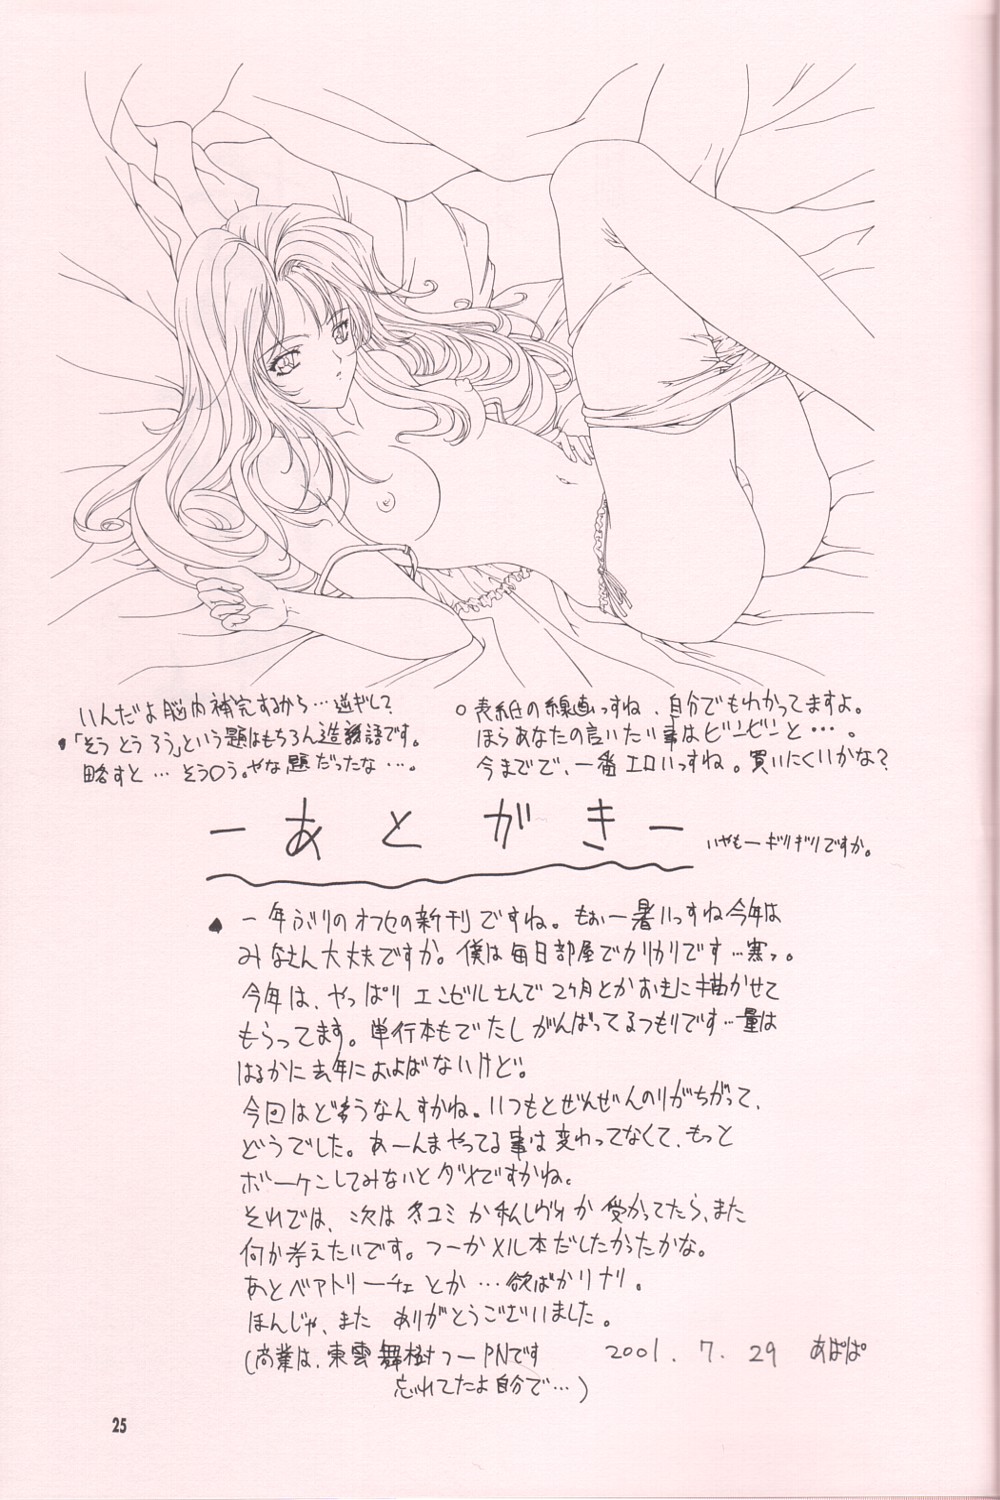 いんだよ脳内補完するから…逆ギレ?
「そうとうろう」という題はもちろん造語です。
略すと…そうろう。やな題だったな…。
○表紙の線画っすね、自分でもわかってますよ。
ほらあなたの言いたい事はビンビンと…。
今までで、一番エロいっすね。買いにくいかな?
ーあとがきー
いやもーギリギリですか。
一年ぶりのオフセの新刊ですね。もぉー暑いっすね今年は
みなさん大丈夫ですか。僕は毎日部屋でカリカリです…寒っ。
今年は、やっぱりエンゼルさんで2ケ月とかおきに描かせて
もらってます。単行本もでたしがんばってるつもりです…量は
はるかに去年におよばないけど。
今回はどうなんすかね。いつもとぜんぜんのりがちがって、
どうでした。あーんまやってる事は変わってなくて、もっと
ボーケンしてみないとダメですかね。
それでは、次は冬コミか受かってたら、また
何か考えたいです。つーかメル本だしたかったかな。
あとベアトリーチェとか…欲ばかりナリ。
ほんじゃ、また ありがとうございました。
(商業は、東雲舞樹つーPNです
忘れてたよ自分で…)
2001.7.29 あぱぱ
25